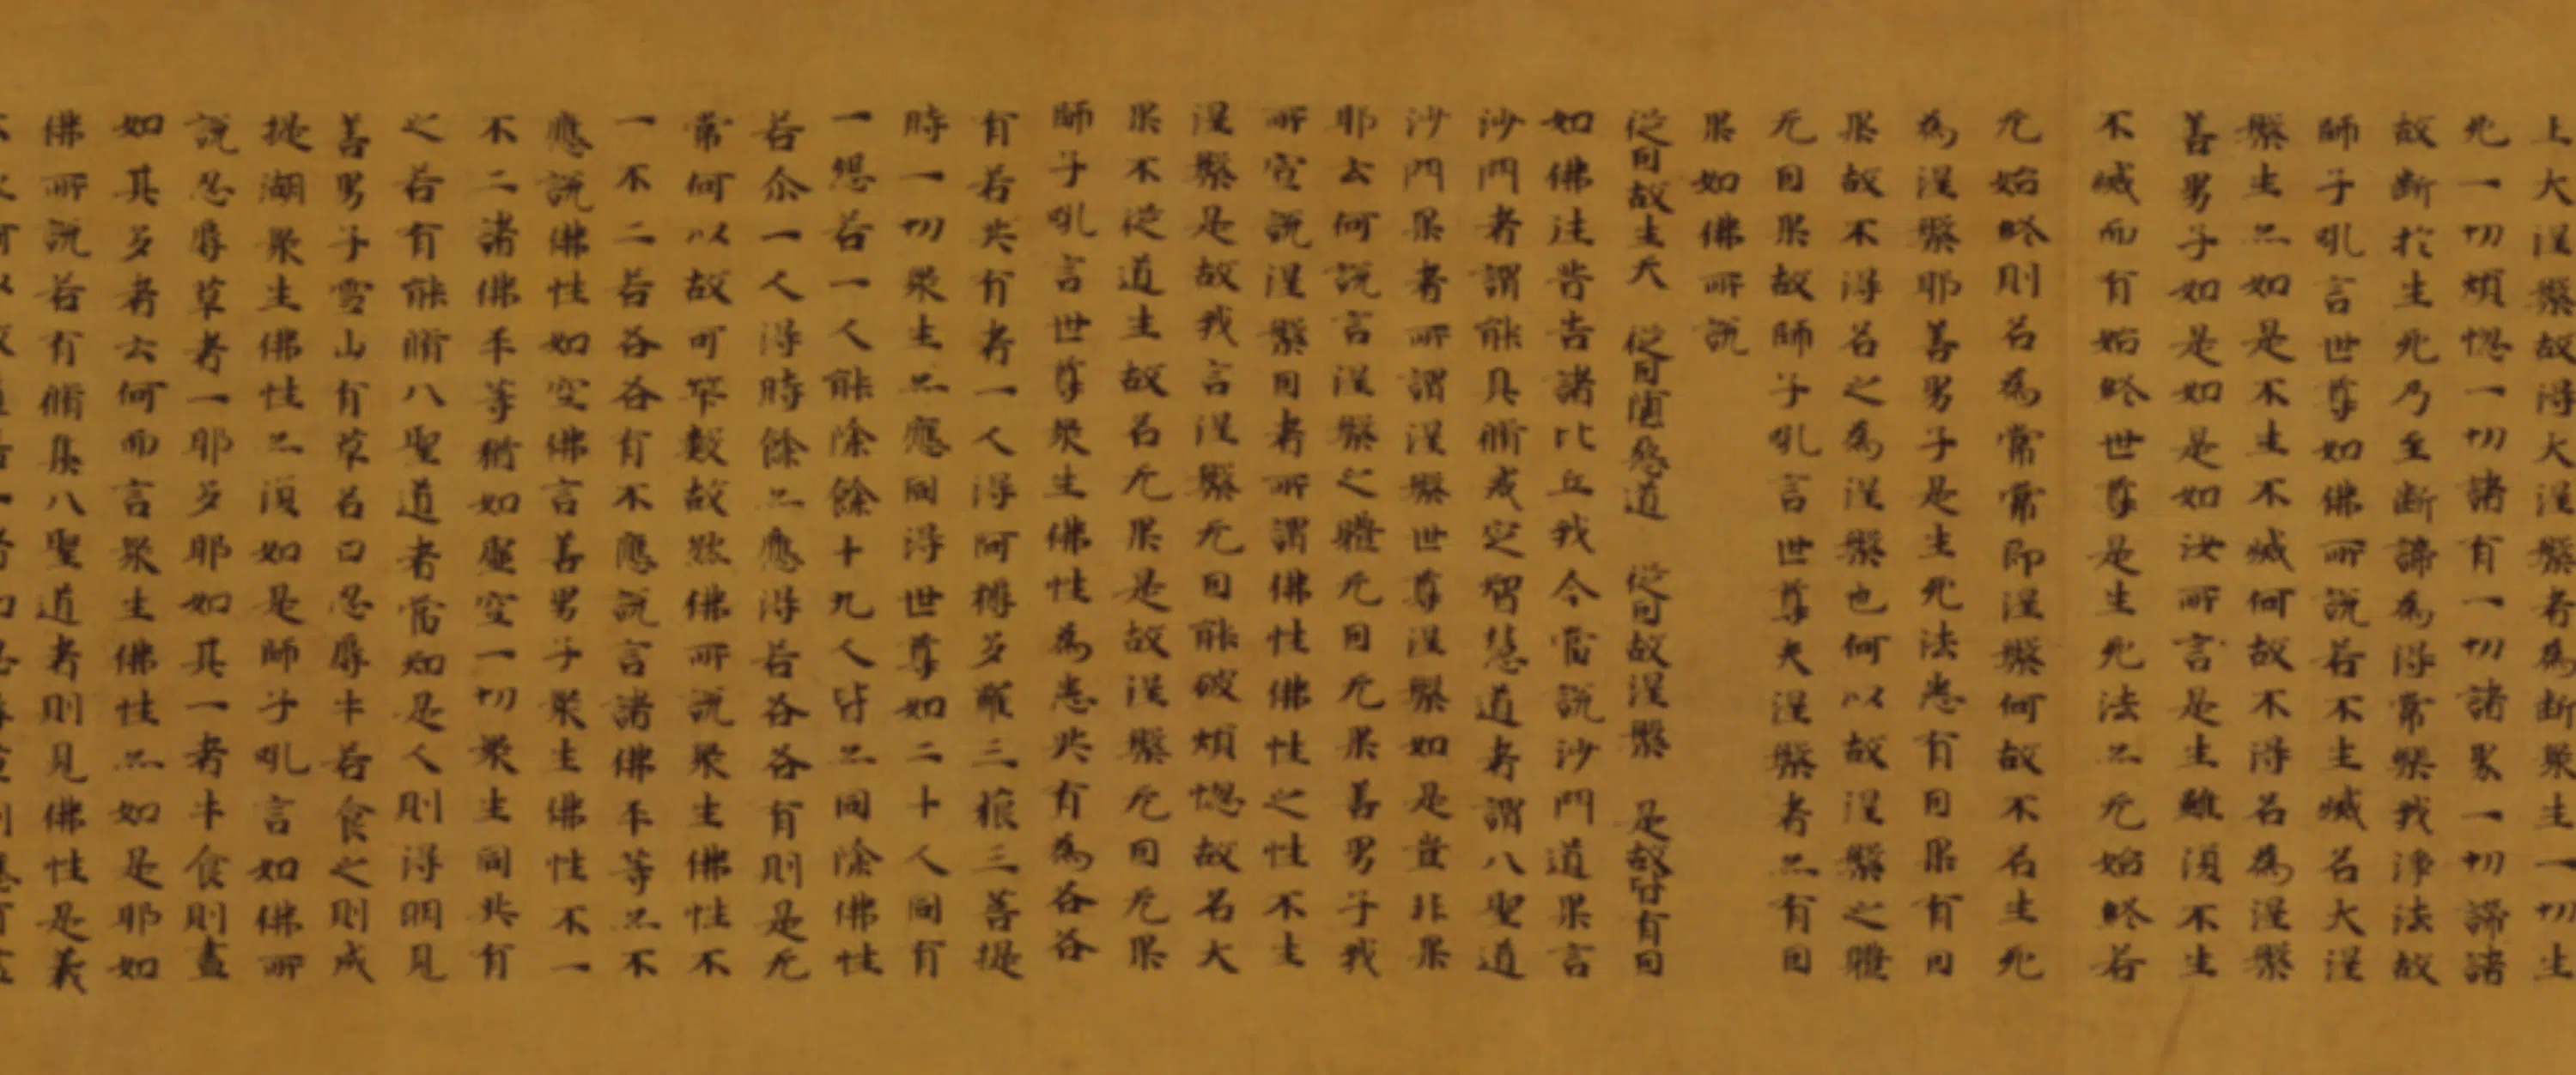 上大涅槃故得大涅槃者為断衆生一切生
死一切煩惚一切諸有一切諸界一切諦諸
故断於生死乃至断諦為得常樂我淨法故
師子吼言世尊如佛所說若不生滅名大涅
槃生亦如是不生不滅何故不得名為涅槃
善男子如是如是如汝所言是生雖湏不生
不滅而有始終世尊是生死法亦无始終若
无始終則名為常常即涅槃何故不名生死
為涅槃耶善男子是生死法悉有囙果有囙
果故不得名之為涅槃也何以故涅槃之體
无囙果故師子吼言世尊夫涅槃者亦有囙
果如佛所說
從囙故生天 從囙墮惡道 從囙故涅槃 是故皆有囙
如佛往昔告諸比丘我今當說沙門道果言
沙門者謂能具脩戒定智慧道者謂八聖道
沙門果者所謂涅槃世尊涅槃如是豈非果
耶云何說言涅槃之體无囙无果善男子我
所宣說涅槃囙者所謂佛性佛性之性不生
涅槃是故我言涅槃无囙能破煩惚故名大
果不從道生故名无果是故涅槃无囙无果
師子吼言世尊衆生佛性為悉共有為各各
有若共有者一人得阿耨多羅三藐三菩提
時一切衆生亦應同得世尊如二十人同有
一怨若一人能除餘十九人皆亦同除佛性
若尒一人得時餘亦應得若各各有則是无
常何以故可筭數故然佛所說衆生佛性不
一不二若各各有不應說言諸佛平等亦不
應說佛性如空佛言善男子衆生佛性不一
不二諸佛平等猶如虛空一切衆生同共有
之若有能脩八聖道者當知是人則得明見
善男子雪山有草名曰忍辱牛若食之則成
提湖衆生佛性亦湏如是師子吼言如佛所
說忍辱草者一耶多耶如其一者牛食則盡
如其多者云何而言衆生佛性亦如是耶如
佛所說若有脩集八聖道者則見佛性是義